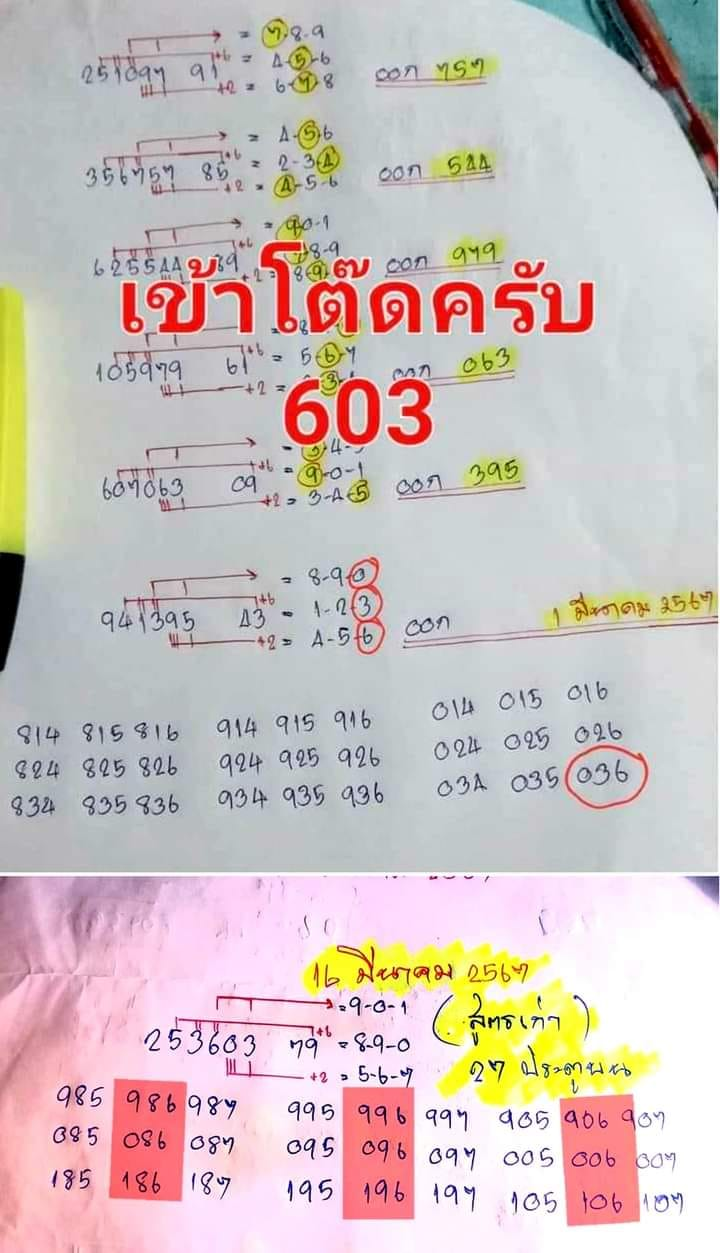 = 7-8-9
+6 = 4-5-6
251097 91 ออก 757
+2 = 6-7-8
= 4-5-6
+6 = 2-3-4
356757 85 ออก 544
+2 = 4-5-6
= 9-0-1
+6 8-9
625544 39 ออก 979
+2 = 8-9
เข้าโต๊ดครับ
+6 = 5-6-7
105979 61 ออก 063
+2 =
603
+6 = 9-0-1
607063 09 ออก 395
+2 = 3-4-5
= 8-9-0
+6 = 1-2-3
941395 43 ออก 1 มีนาคม 2567
+2 = 4-5-6
814 815 816 914 915 916 014 015 016
824 825 826 924 925 926 024 025 026
834 835 836 934 935 936 034 035 036
16 มีนาคม 2567
=9-0-1 (สูตรเก่า)
253603 79 +6 =8-9-0
+2 = 5-6-7 27 ประตูบน
985 986 987 995 996 997 905 906 907
085 086 087 095 096 097 005 006 007
185 186 187 195 196 197 105 106 107